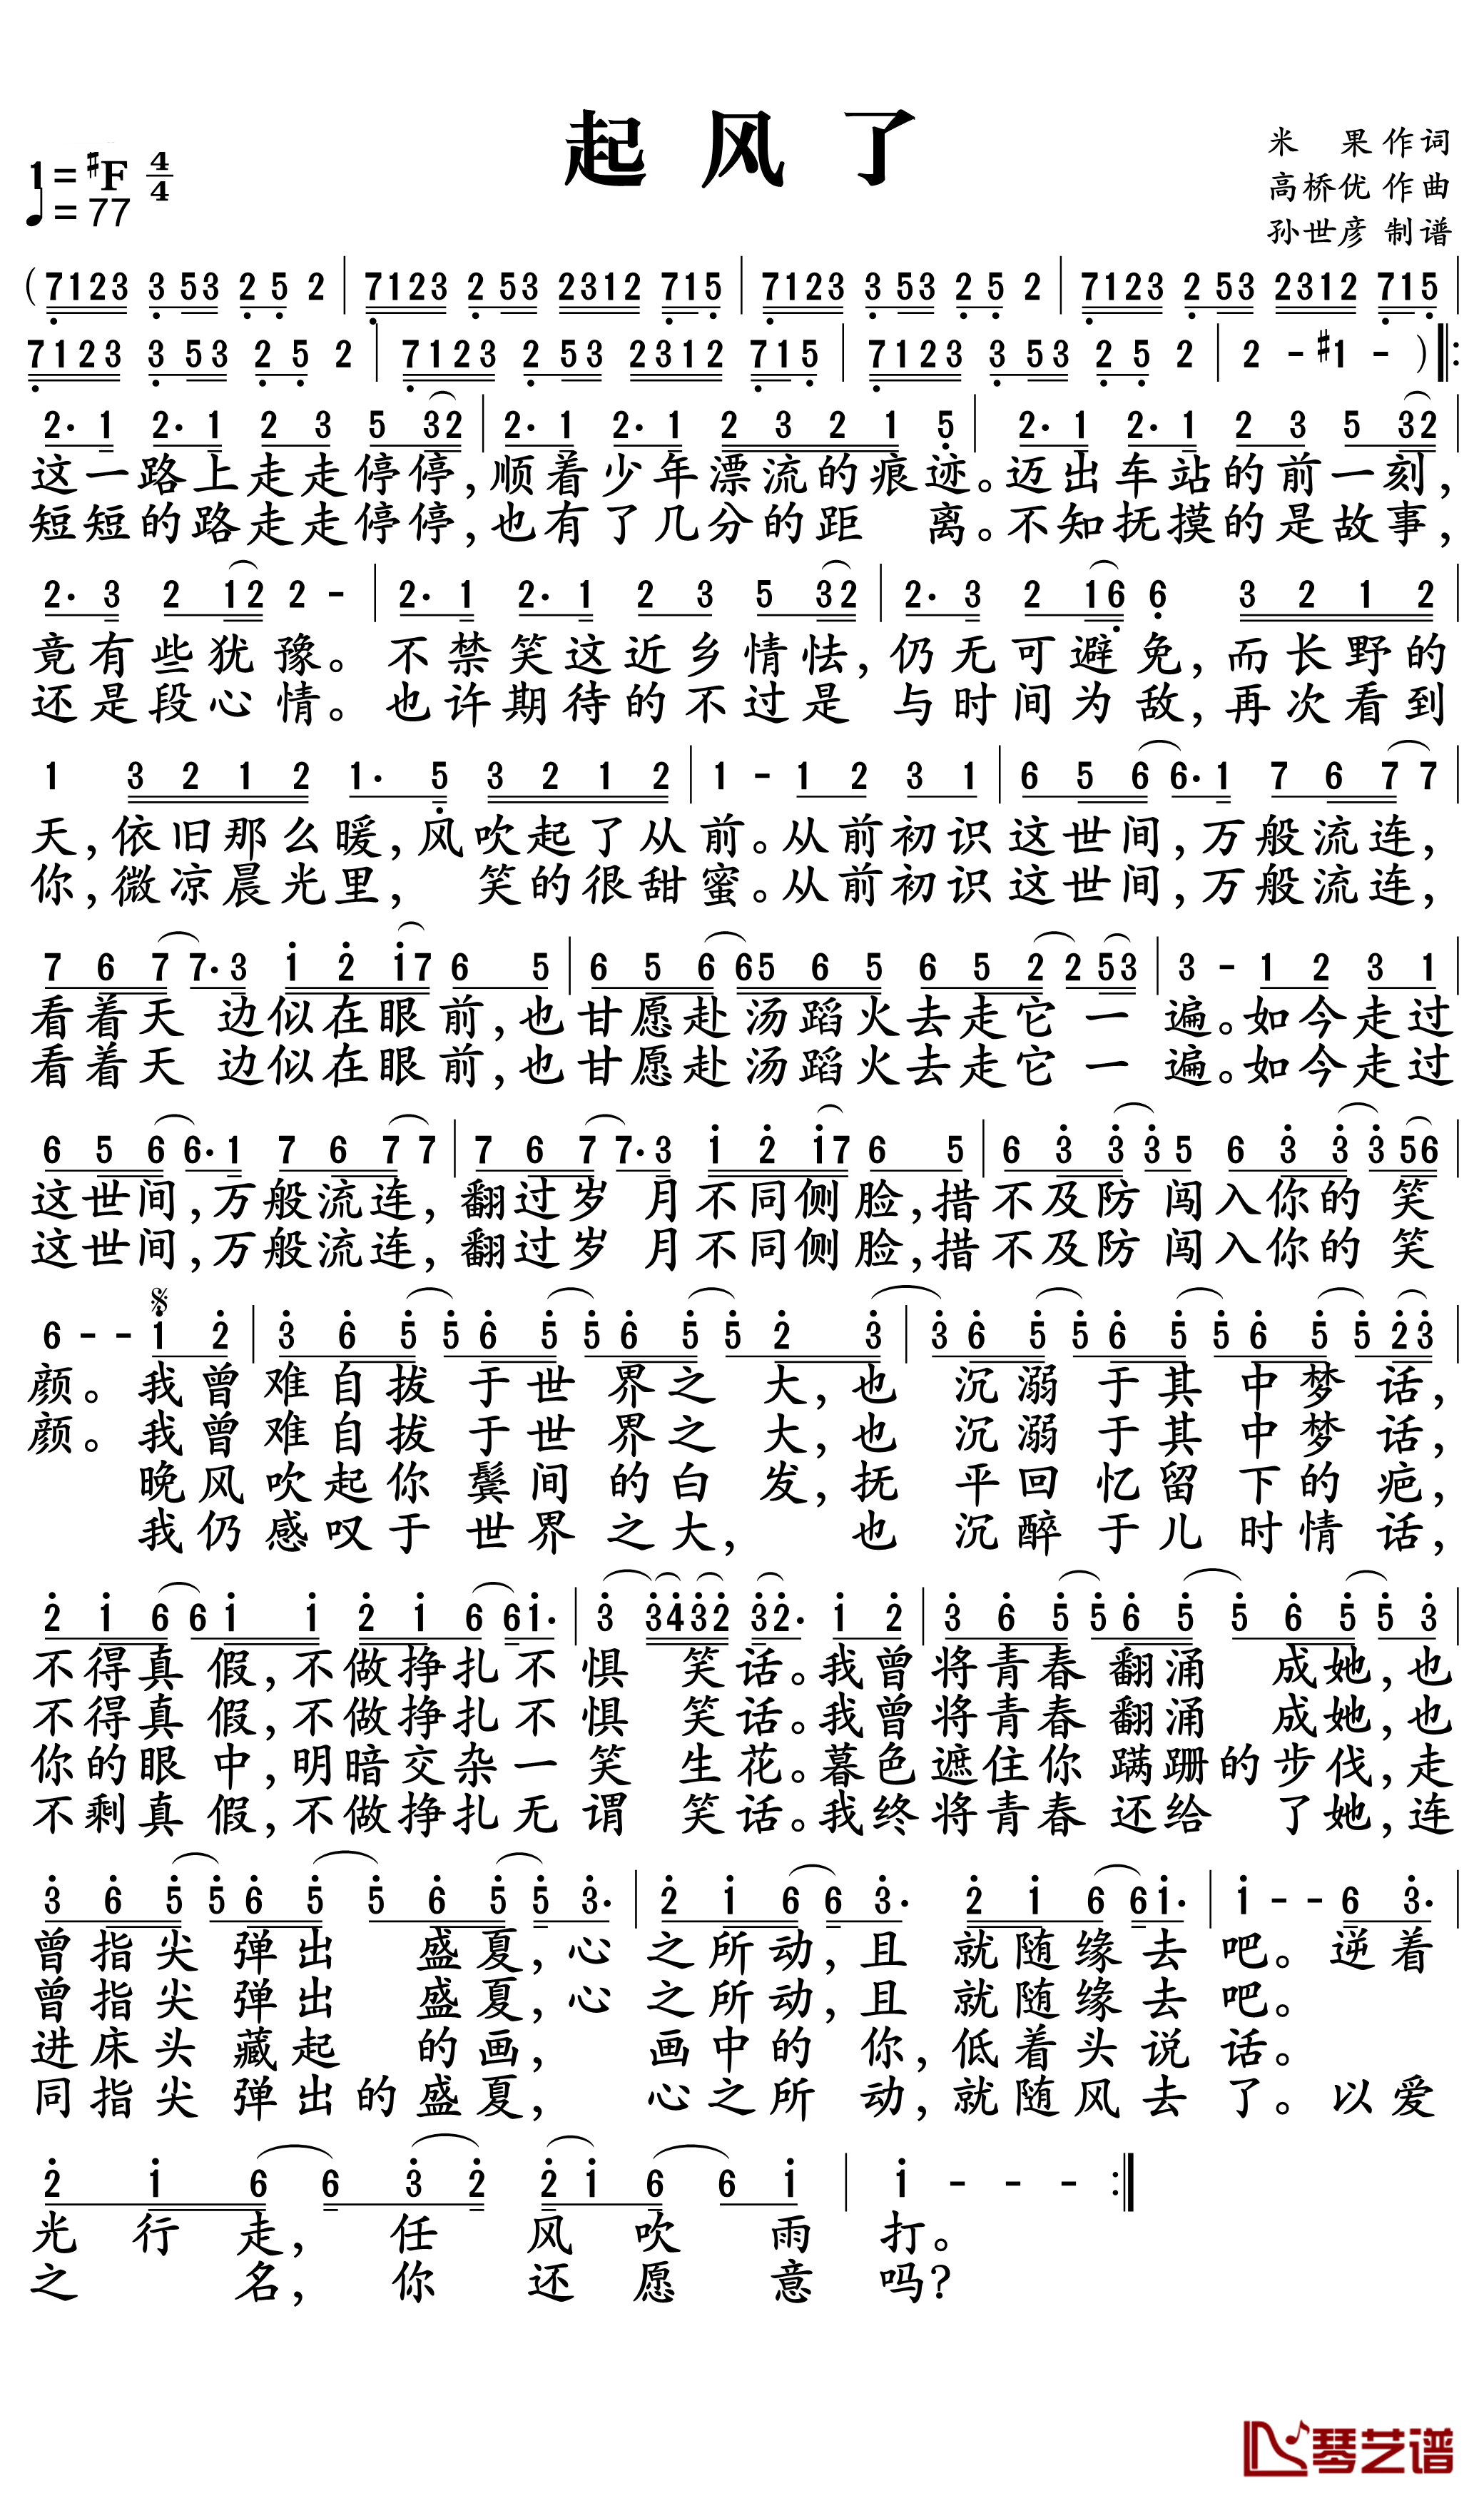 起风了
1=♯F 4/4
♩=77
米 果 作词
高桥优 作曲
孙世彦 制谱
( 7123 3 53 2 5 2 | 7123 2 53 2312 715 | 7123 3 53 2 5 2 | 7123 2 53 2312 715 |
7123 3 53 2 5 2 | 7123 2 53 2312 715 | 7123 3 53 2 5 2 | 2 - ♯1 - ) ‖:
2· 1 2· 1 2 3 5 32 | 2· 1 2· 1 2 3 2 1 5 | 2· 1 2· 1 2 3 5 32 |
这一路上走走停停,顺着少年漂流的痕迹。迈出车站的前一刻,
短短的路走走停停,也有了几分的距 离。不知抚摸的是故事,
2· 3 2 12 2 - | 2· 1 2· 1 2 3 5 32 | 2· 3 2 16 6 3 2 1 2 |
竟有些犹豫。不禁笑这近乡情怯,仍无可避免,而长野的
还是段心情。也许期待的不过是 与时间为敌,再次看到
1 3 2 1 2 1· 5 3 2 1 2 | 1 - 1 2 3 1 | 6 5 6 6· 1 7 6 7 7 |
天,依旧那么暖,风吹起了从前。从前初识这世间,万般流连,
你,微凉晨光里, 笑的很甜蜜。从前初识这世间,万般流连,
7 6 7 7· 3 1 2 17 6 5 | 6 5 6 65 6 5 6 5 2 2 53 | 3 - 1 2 3 1 |
看着天 边似在眼前,也甘愿赴汤蹈火去走它一 遍。如今走过
看着天 边似在眼前,也甘愿赴汤蹈火去走它一 遍。如今走过
6 5 6 6· 1 7 6 7 7 | 7 6 7 7· 3 1 2 17 6 5 | 6 3 3 3 5 6 3 3 3 56 |
这世间,万般流连,翻过岁 月不同侧脸,措不及防 闯入你的 笑
这世间,万般流连,翻过岁 月不同侧脸,措不及防 闯入你的 笑
6 - - 1 2 | 3 6 5 5 6 5 5 6 5 5 2 3 | 3 6 5 5 6 5 5 6 5 5 23 |
颜。我曾难自拔 于世 界之 大,也 沉溺 于其 中梦 话,
颜。我曾难自拔 于世 界之 大,也 沉溺 于其 中梦 话,
晚风吹起你 鬓间 的白 发,抚 平回忆留 下的 疤,
我仍感叹于 世界 之大, 也 沉醉 于儿 时情 话,
2 1 6 6 1 1 2 1 6 6 1· | 3 34 32 3 2· 1 2 | 3 6 5 5 6 5 5 6 5 5 3 |
不得真 假,不做挣扎不 惧 笑话。我曾将青春 翻涌 成她,也
不得真 假,不做挣扎不 惧 笑话。我曾将青春 翻涌 成她,也
你的眼 中,明暗交杂一 笑 生花。暮色遮住你 蹒跚的步伐,走
不剩真 假,不做挣扎无 谓 笑话。我终将青春 还给 了她,连
3 6 5 5 6 5 5 6 5 5 3· | 2 1 6 6 3· 2 1 6 6 1· | 1 - - 6 3· |
曾指尖 弹出 盛夏,心 之所动,且 就随缘去 吧。逆着
曾指尖 弹出 盛夏,心 之所动,且 就随缘去 吧。
进床头 藏起 的画, 画中的 你,低着头说 话。
同指尖 弹出的盛夏, 心之所 动,就随风去 了。以爱
2 1 6 6 3 2 2 1 6 6 1 | 1 - - - :‖
光行走,任 风吹雨 打。
之 名,你 还愿意 吗?
琴艺谱